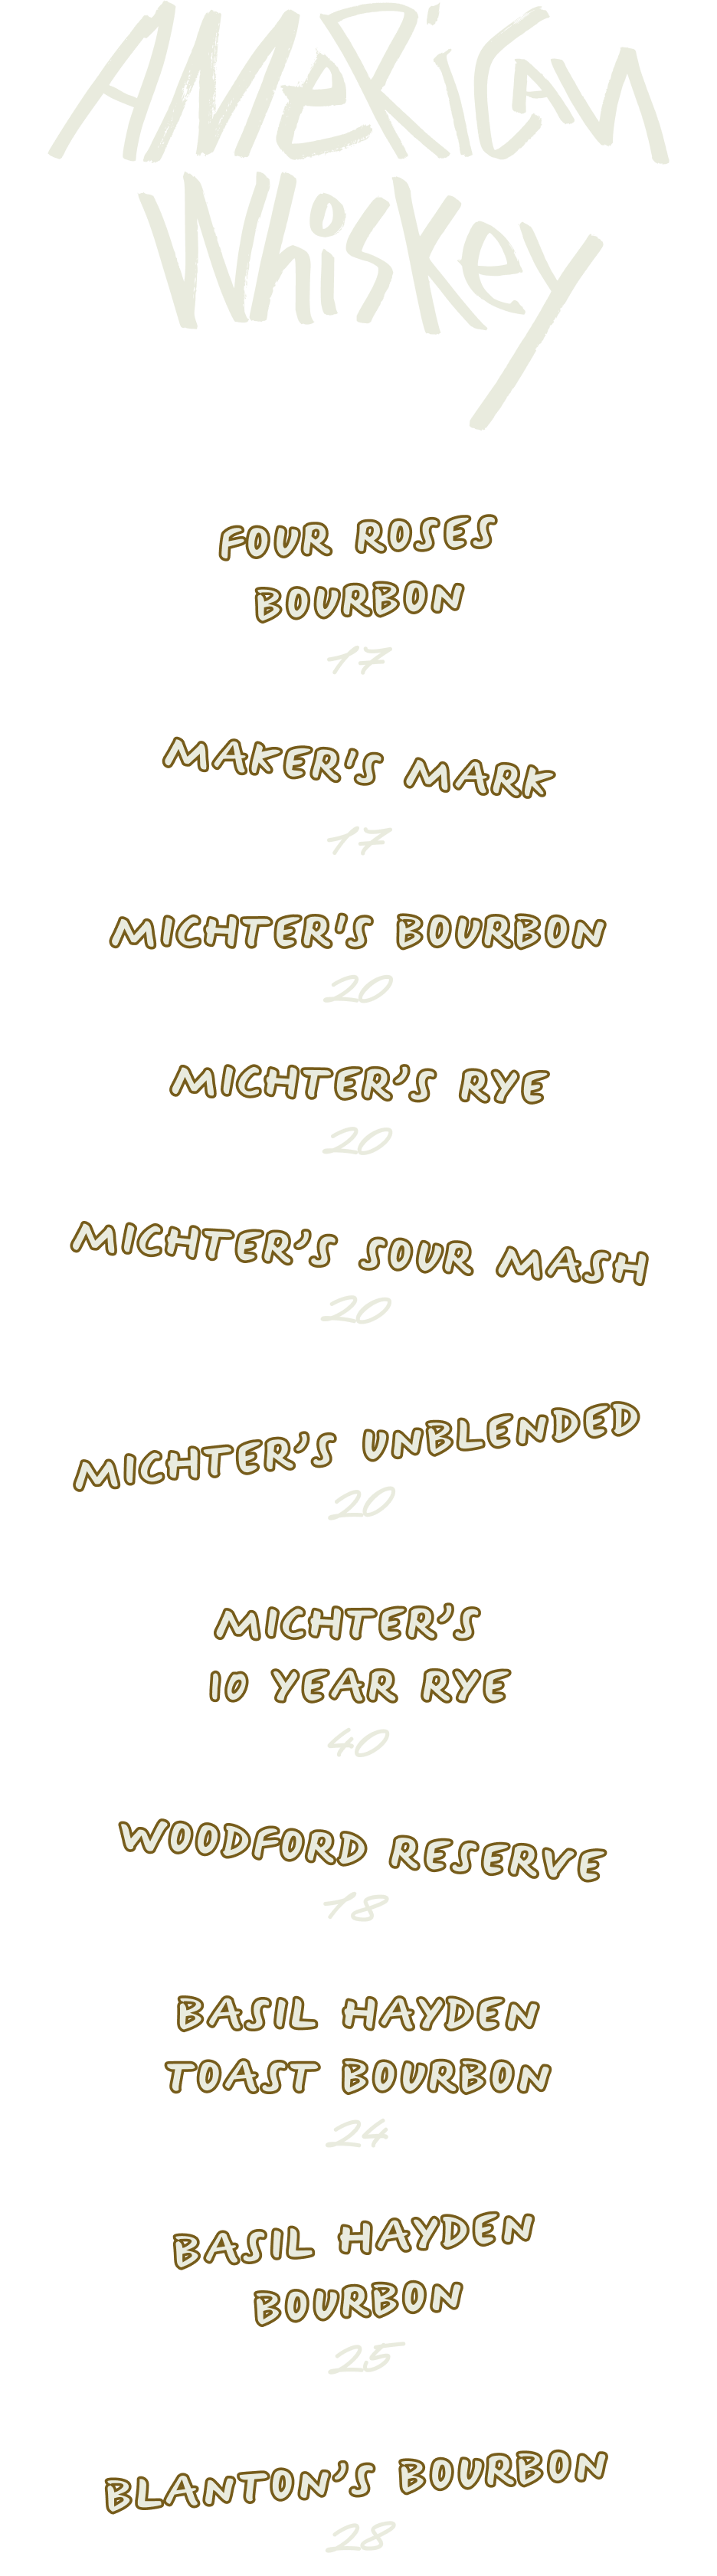 AMERICAN
WHISKEY
FOUR ROSES
BOURBON
17
MAKER'S MARK
17
MICHTER'S BOURBON
20
MICHTER’S RYE
20
MICHTER’S SOUR MASH
20
MICHTER’S UNBLENDED
20
MICHTER’S
10 YEAR RYE
40
WOODFORD RESERVE
18
BASIL HAYDEN
TOAST BOURBON
24
BASIL HAYDEN
BOURBON
25
BLANTON’S BOURBON
28